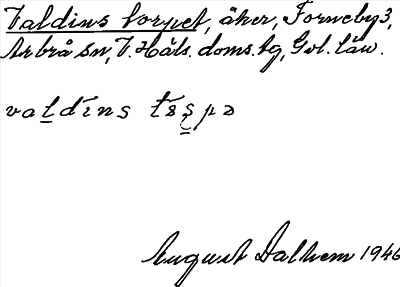 Valdins torpet, åker, Forneby 3,
Arbrå sn, V. Häls. doms. hg, Gvl. län.
valdins
August Dalhem 1946